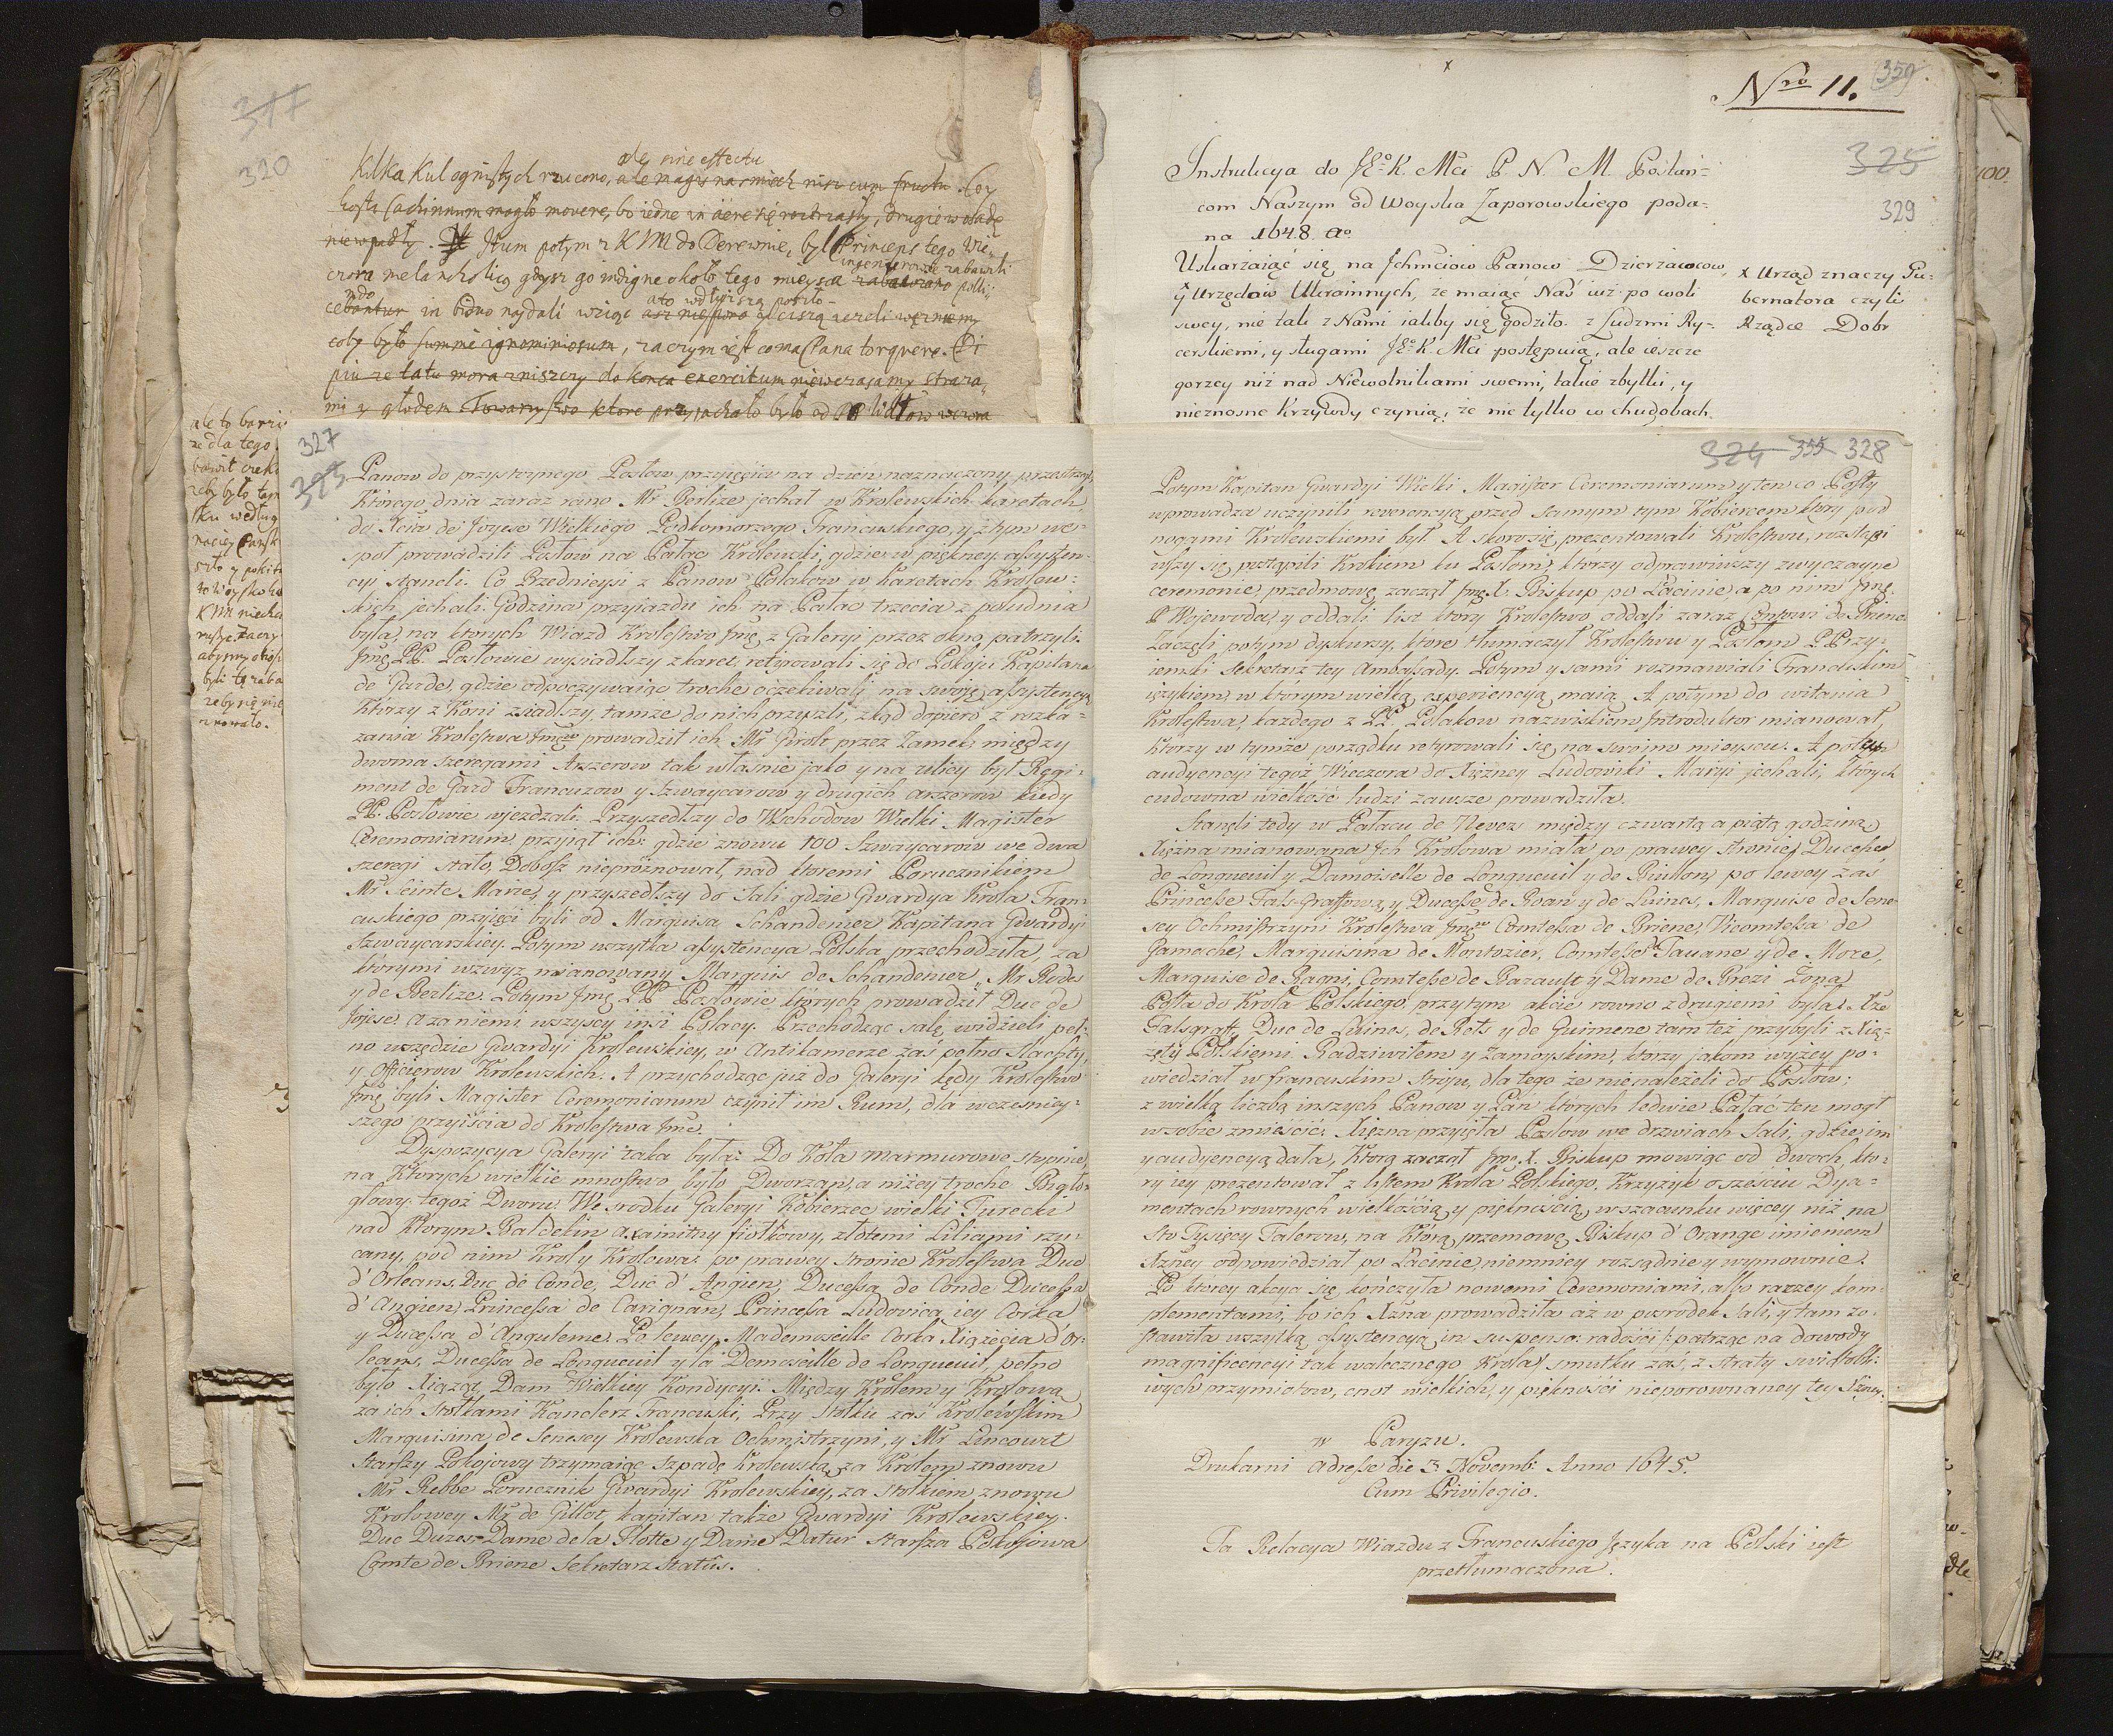 377
320
Kilka Kul ognistych rzucono, ale magis na smiech nisi cum fructu. Coy
ale sine effectu
hosti cachinnum mogło movere, bo iedne in äere się roztrzasły, drugie w wodę
nie wpadły. Itum potym z KJM do Derewnie, był Princeps tego Wie-
czora melancholicq gdysz go indigne około tego mieysca
cebantur in bidno najdali wziąc
coby było summe ignominiosum, zaczym iest co ma Pana torquere.
piu ze tatu mora zniszczy do konca exercitum niewczasamy straza-
mi y głodem Towarzystwo ktore przyjachało było od
ale to barzi
ze dla tego
bawił czek
zeby było tam
sku według
szło y pokit
to Woysko ka
KJM niecha
abysmy
byli tę zaba
zeby się nie
Nro 11.
359
325
329
Instrukcya do JE⸰ K. Mci P. N. M. Posłań=
com Naszym od Woyska Zaporowskiego poda=
na 1648 a⸰
Uskarzaiąc się na Jchmciow Panow Dzierzawcow,
x y Urzędow Ukrainnych, że maiąc Naś iuż po woli
swey, nie tak z Nami iakby się godziło z Ludzmi Ry-
cerskiemi, y sługami JE⸰ K. Mci postępuią, ale ieszcze
gorzey niż nad Niewolnikami swemi, takie zbytki, y
nieznosne Krzywdy czynią, że nie tylko w chudobach
x Urząd znaczy Gu=
bernatora czyli
Rządcę Dobr
327
323
Panow do przystoynego Posłow przyięciw na dzien naznaczony, przestrzegł,
Którego dnia zaraz rano Mr Berlize jechał w Krolewskich karetach,
do Xcia de Joyese Wielkiego Podkomorzego Francuskiego, y z tym we-
społ prowadzili Posłow na Pałac Krolewski, gdzie w piękney assysten-
cyi stanęli. Co Przednieysi z Panow Polakow w Karetach Krolew-
skich jechali. Godzina przyiazdu ich na Pałac trzecia z południa
była, na ktorych Wiazd Krolestwo Jmę z Galeryi przez okna patrzyli.
Jmę PP. Posłowie wysiadłszy z karet retirowali się do Pokoju Kapitana
de Garde, gdzie odpoczywaiąc troche oczekiwali na swoję assystencyą
Którzy z Koni zsiadłszy, tamże do nich przyszli, zkąd dopiero z rozka-
zania Krolestwa Jmę prowadził ich Mr Girolt przez Zamek, między
dwoma szeregami Arszerow tak własnie jako y na ulicy był Regi-
ment de Gard Francuzow y Szwaycarow y drugich arszerow kiedy
PP. Posłowie wjezdzali. Przyszedłszy do Wschodow Wielki Magister
Ceremoniarum przyiął ich: gdzie znowu 100 Szwaycarow we dwa
szeregi stało, Dobosz nieprożnował, nad ktoremi Porucznikiem
Mr Seinte Marie, y przyszedłszy do Sali gdzie Gwardya Krola Fran-
cuskiego przyięci byli od Marquisa Schandenier Kapitana Gwardyi
Szwaycarskiey. Potym wszytka assystencya Polska przechodziła, za
ktorymi wzwyz mianowany Marquis de Schandenier, Mr Rodes
y de Berlize. Potym Jmę PP Posłowie których prowadził Duc de
Jojese, a za niemi wszyscy insi Polacy. Przechodząc salę, widzieli peł-
no wszędzie Gwardyi Krolewskiey, w Antikamerze zaś pełno Slachty,
y Officierow Krolewskich. A przychodząc już do Galeryi kędy Krolestwo
Jmę byli Magister Ceremoniarum czynił im Rum, dla wczesniey-
szego przyiścia do Krolestwa Jmę.
Dyspozycya Galeryi taka była: Do Koła marmurowe stopnie,
na Ktorych wielkie mnostwo było Dworzan, a niżey troche Biągło-
głowy tegoż Dworu. We srodku Galeryi Kobierzec wielki Turecki
nad Ktorym Baldekin axamitny fiołkowy, złotemi Liliami rzu-
cany, pod nim Krol y Krolowa: po prawey stronie Krolestwa Duc
d'Orleans, Duc de Conde, Duc d'Angien, Ducessa de Conde Ducessa
d'Angien, Princessa de Carignan, Princessa Ludovica iey Corka
y Ducessa d'Anguleme. Po lewey Mademoseille Corka Xiążęcia d'Or-
leans, Ducessa de Longueuil y la Demoseille de Longueuil, pełno
było Xiążąt, Dam Wielkiey Kondycyi. Między Krolem y Krolową
za ich stołkami Kanclerz Francuski, Przy stołku zaś Krolewskim
Marquisina de Senesey Krolewska Ochmistrzyni, y Mr Lincourt
Starszy Pokojowy trzymaiąc Szpadę Krolewską, za Krolem znowu
Mr Rebbe Porucznik Gwardyi Krolewskiey, za stołkiem znowu
Krolowey Mr de Gillot, kapitan także Gwardyi Krolewskiey.
Duc Duzes, Dame de la Flotte y Dame Datur Starsza Pokojowa
Comte de Briene Sekretarz Status.
324 355 328
Potym Kapitan Gwardyi Wielki Magister Ceremoniarum y ten co Posły
wprowadza uczynili reverencyą przed samym tym Kobiercem ktory pod
nogami Krolewskiemi był. A skoro się prezentowali Krolestwu, rozstąpi
wszy się postąpili Krokiem ku Posłom, ktorzy odprawiwszy zwyczayne
ceremonie, przedmowę zaczął Jmę X. Biskup po Łacinie a po nim Jmę.
P Wojewoda, y oddali list ktory Krolestwo oddali zaraz Contowi de Briene
Zaczęli potym dyskursy, ktore tłumaczył Krolestwu y Posłom P. Przy-
iemski Sekretarz tey Ambassady. Potym y sami rozmawiali Francuskim
ięzykiem, w ktorym wielką experiencyą maią. A potym do witania
Krolestwa, każdego z PP. Polakow nazwiskiem Introduktor mianował,
Ktorzy w tymże porządku retyrowali się na swoim mieyscu. A po tey
audyencyi tegoż Wieczora do Xiężney Ludowiki Maryi jechali, ktorych
cudowna wielkość ludzi zawsze prowadziła.
Stanęli tedy w Pałacu de Nevez między czwartą a piątą godziną
Xiężna mianowana Jch Krolowa miała po prawey stronie, Ducesse
de Longueuil y Damoiselle de Longueuil y de Buillon, po lewey zaś
Princesse Fals-Graffową, y Ducesse de Roan y de Luines, Marquise de Sene-
sey Ochmistrzyni Krolestwa Jmę Comtessa de Briene, Vicomtessa de
Gamache, Marquisina de Montozier, Comtesse de Tauane y de More,
Marquise de Ragni, Comtesse de Bazault y Dame de Brezi Zona
Posła do Krola Polskiego, przytym akcie rowno z drugiemi była. Xże
Falsgraff, Duc de Luines, de Rets y de Guimene tam też przybyli z Xią-
żęty Polskiemi Radziwiłem y Zamoyskim, ktorzy jakom wyżey po-
wiedział w francuskim stroju, dla tego że nienależeli do Posłow;
z wielką liczbą inszych Panow y Pań ktorych ledwie Pałac ten mogł
w sobie zmieścić. Xiężna przyięła Posłow we drzwiach Sali, gdzie im
y audyencyą dała, Którą zaczął Jmę. X. Biskup mowiąc od dwoch, kto-
ry iey prezentował z listem Krola Polskiego, Krzyżyk o sześciu Dya-
mentach rownych wielkością y pięknością, w szacunku więcey niż na
sto Tysięcy Talerow, na Którą przemowę Biskup d'Orange imieniem
Xżney odpowiedział po Łacinie niemniey rozsądnie y wymownie.
Po ktorey akcya się kończyła nowemi Ceremoniami, albo raczey kom-
plementami, bo ich Xżna prowadziła aż w posrodek Sali, y tam zo-
stawiła wszytką assystencyą in suspenso: radości /: patrząc na dowody
magnificencyi tak walecznego Krola/ smutku zaś, z straty swiątobli-
wych przymiotow, cnot wielkich, y piękności nieporownaney tey Xżney.
w Paryzu.
Drukarni Adresse die 3 Novemb: Anno 1645.
Cum Privilegio.
Ta Relacya Wiazdu z Francuskiego Języka na Polski iest
przetłumaczona.